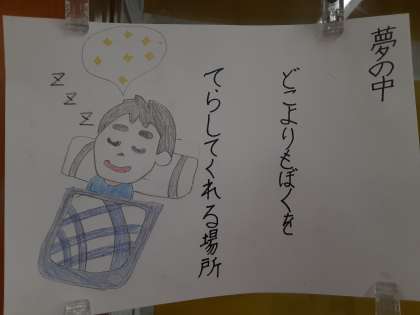 夢の中
どこよりもぼくを
てらしてくれる場所
z
z
z